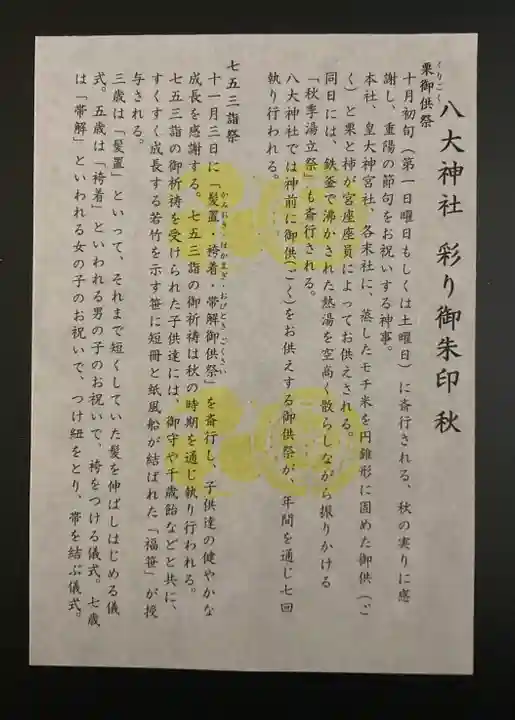 八大神社 彩り御朱印 秋
くりごく
栗御供祭
十月初旬（第一日曜日もしくは土曜日）に斎行される、秋の実りに感
謝し、重陽の節句をお祝いする神事。
本社、皇大神宮社、各末社に、蒸したモチ米を円錐形に固めた御供（ご
く）と栗と柿が宮座座員によってお供えされる。
同日には、鉄釜で沸かされた熱湯を空高く散らしながら振りかける
「秋季湯立祭」も斎行される。
八大神社では神前に御供（ごく）をお供えする御供祭が、年間を通じ七回
執り行われる。
七五三詣祭
かみおき・はかまぎ・おびときごくさい
十一月三日に「髪置・袴着・帯解御供祭」を斎行し、子供達の健やかな
成長を感謝する。七五三詣の御祈祷は秋の時期を通じ執り行われる。
七五三詣の御祈祷を受けられた子供達には、御守や千歳飴などと共に、
すくすく成長する若竹を示す笹に短冊と紙風船が結ばれた「福笹」が授
与される。
三歳は「髪置」といって、それまで短くしていた髪を伸ばしはじめる儀
式。五歳は「袴着」といわれる男の子のお祝いで、袴をつける儀式。七歳
は「帯解」といわれる女の子のお祝いで、つけ紐をとり、帯を結ぶ儀式。